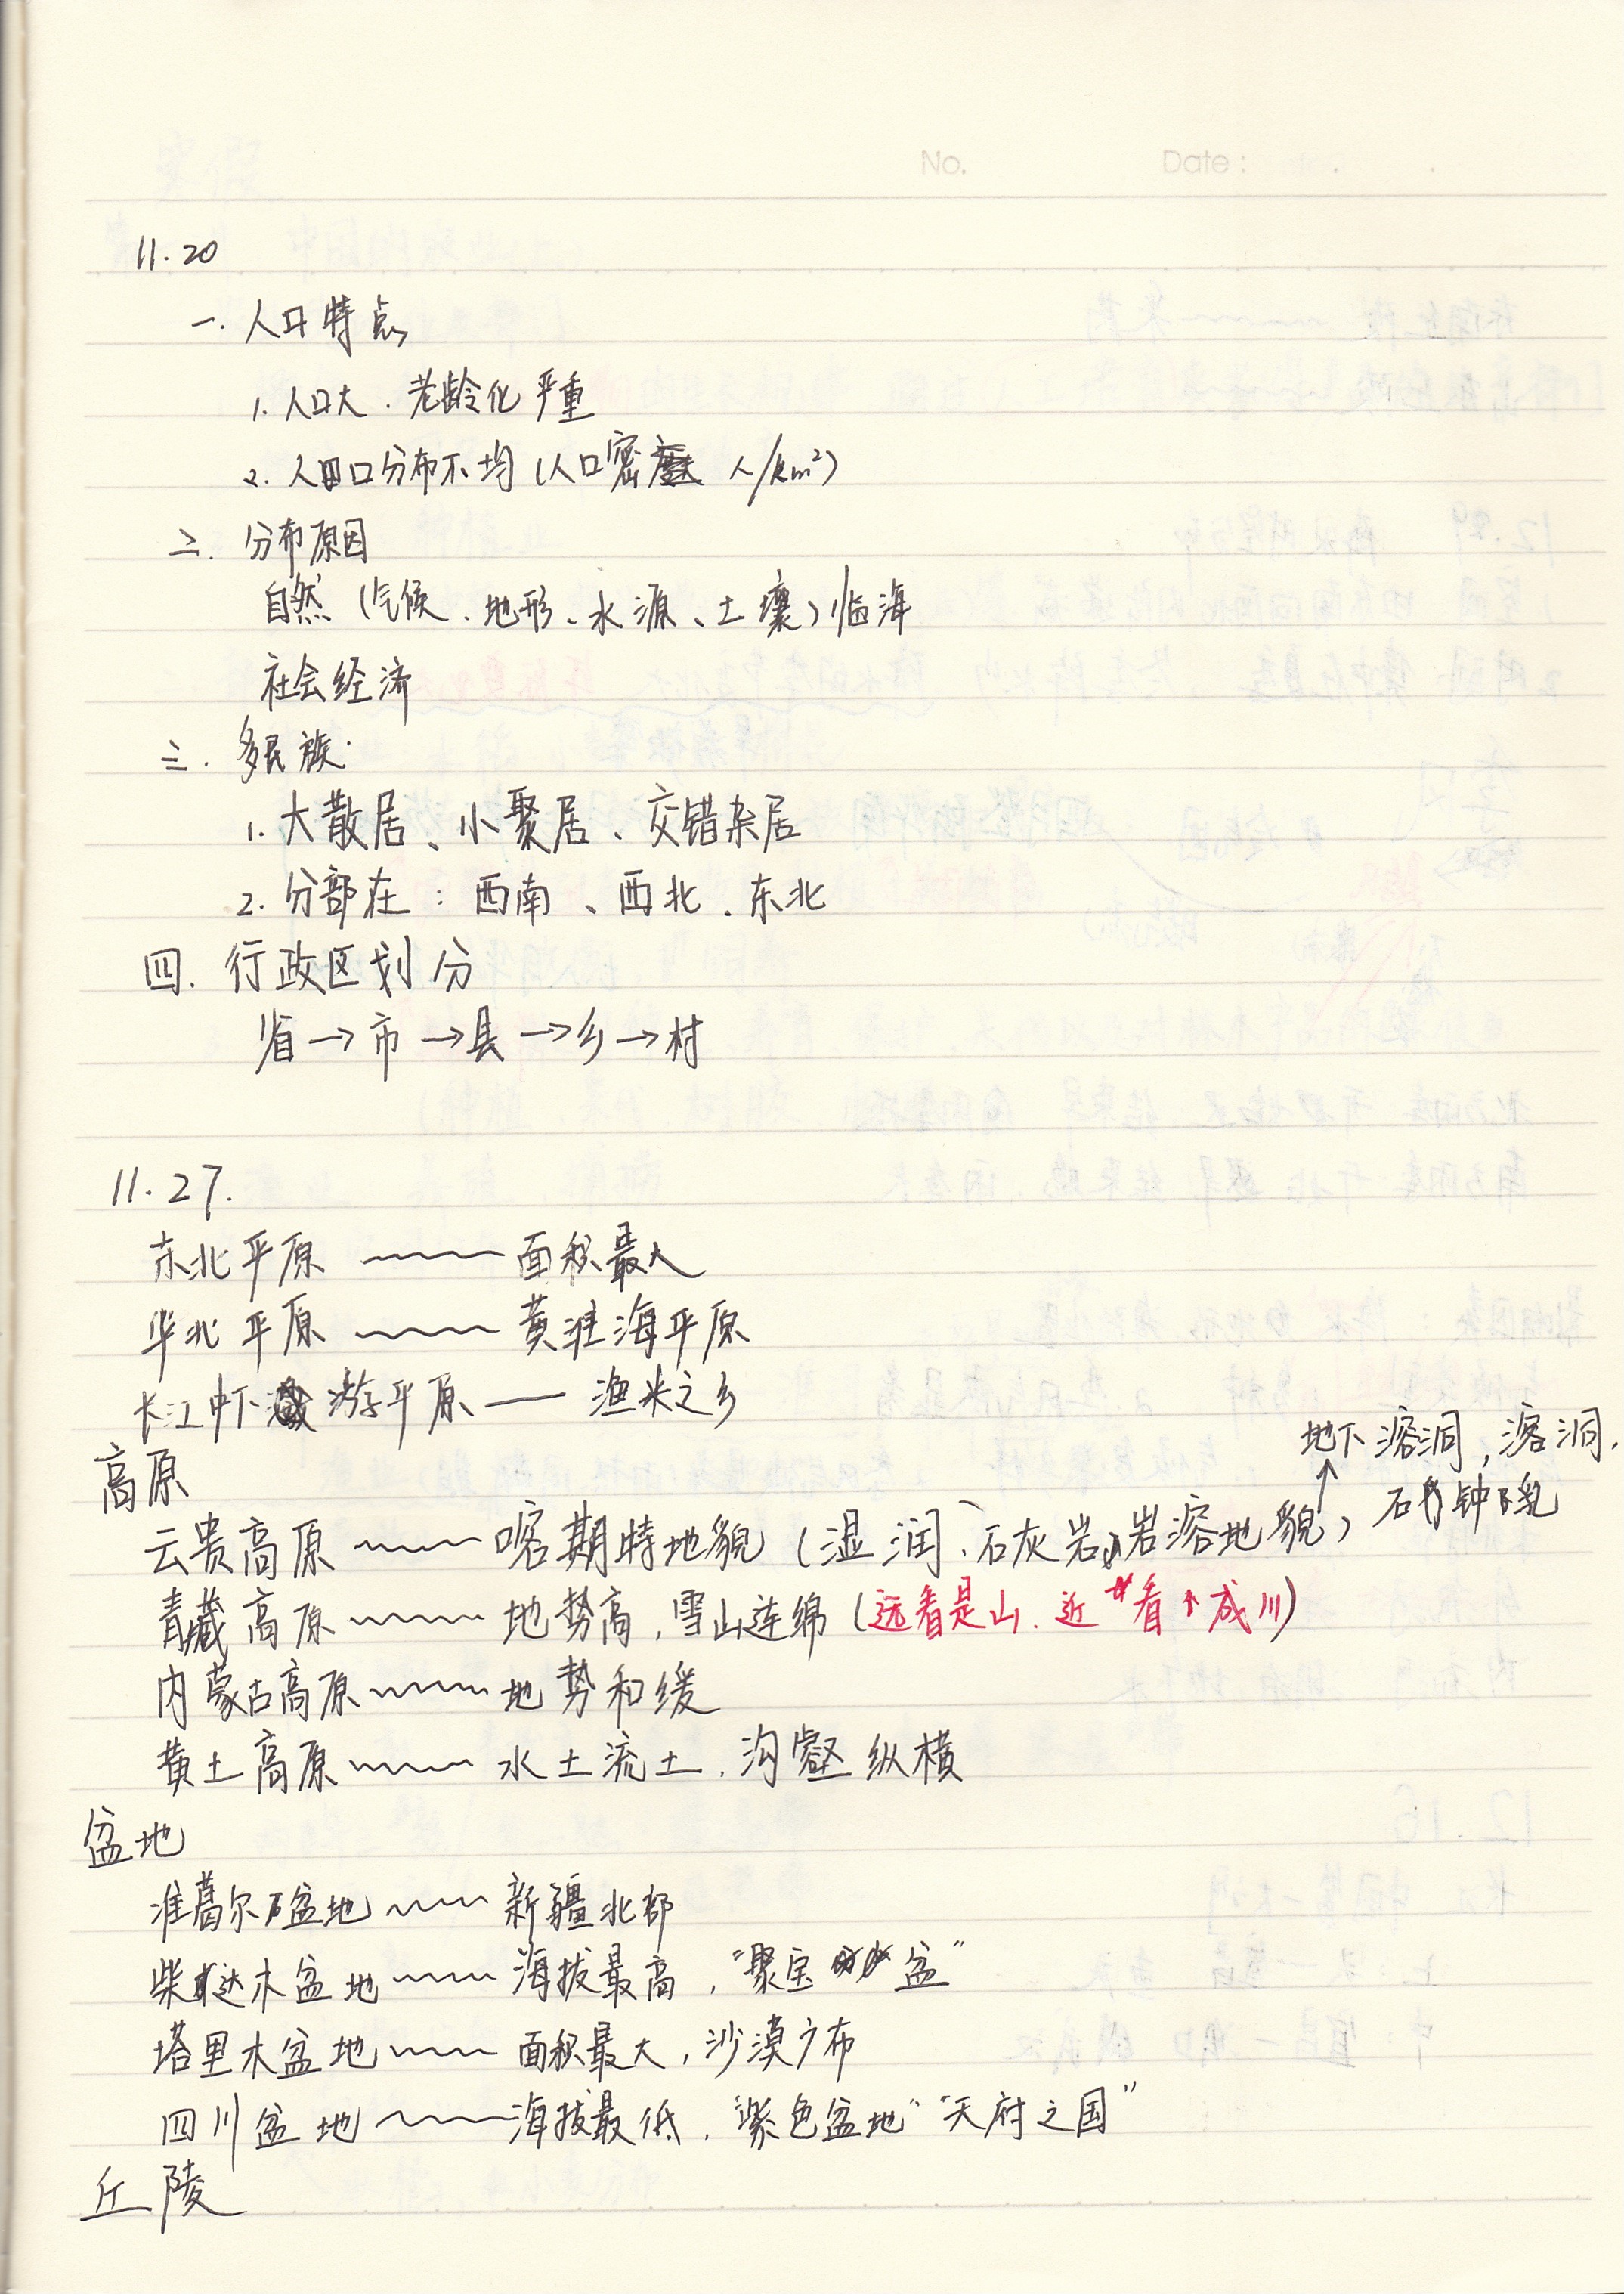 No.    Date:
11.20
一. 人口特点
1. 人口大. 老龄化严重
2. 人口分布不均(人口密度 人/km²)
二. 分布原因
自然(气候、地形、水源、土壤)临海
社会经济
三. 多民族:
1. 大散居、小聚居、交错杂居
2. 分部在: 西南、西北、东北
四. 行政区划分
省→市→县→乡→村
11.27.
东北平原 ~~~ 面积最大
华北平原 ~~~ 黄淮海平原
长江中下游平原 — 渔米之乡
高原
地下溶洞, 溶洞,
石钟乳
云贵高原 ~~~ 喀斯特地貌(湿润、石灰岩、岩溶地貌)
青藏高原 ~~~ 地势高, 雪山连绵(远看是山. 近看成川)
内蒙古高原 ~~~ 地势和缓
黄土高原 ~~~ 水土流土, 沟壑纵横
盆地
准葛尔盆地 ~~~ 新疆北部
柴达木盆地 ~~~ 海拔最高, "聚宝盆"
塔里木盆地 ~~~ 面积最大, 沙漠广布
四川盆地 ~~~ 海拔最低, "紫色盆地" "天府之国"
丘陵